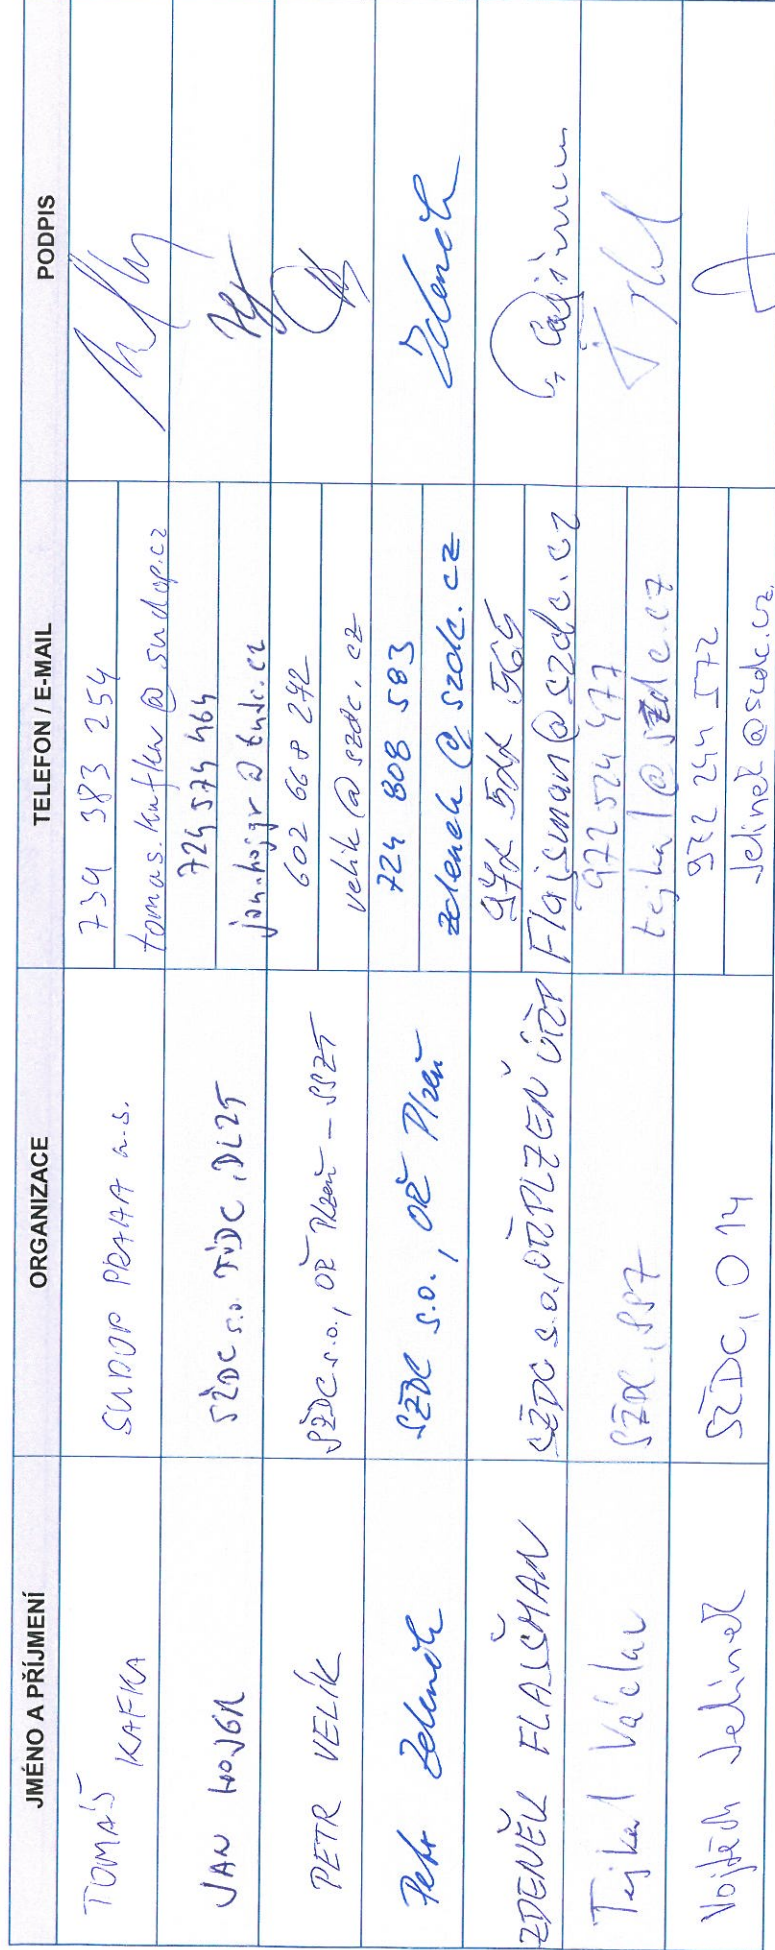 JMÉNO A PŘÍJMENÍ ORGANIZACE TELEFON / E-MAIL PODPIS
TOMÁŠ KAFKA SUDOP PRAHA a.s. 734 383 254
tomas.kafka@sudop.cz
JAN SŽDC s.o. 724 574 464
PETR VELÍK SŽDC s.o., OŘ Plzeň - SSZT 602 668 292
velik@szdc.cz
Petr Zelenek SŽDC s.o., OŘ Plzeň 724 808 583 Zelenek
zelenek@szdc.cz
ZDENĚK SŽDC s.o., OŘ PLZEŇ
Flajsman@szdc.cz
Tejkal Václav SŽDC, 972 524 477
tejkal@szdc.cz
Vojtěch Jelínek SŽDC, O14 972 244 572
Jelinek@szdc.cz